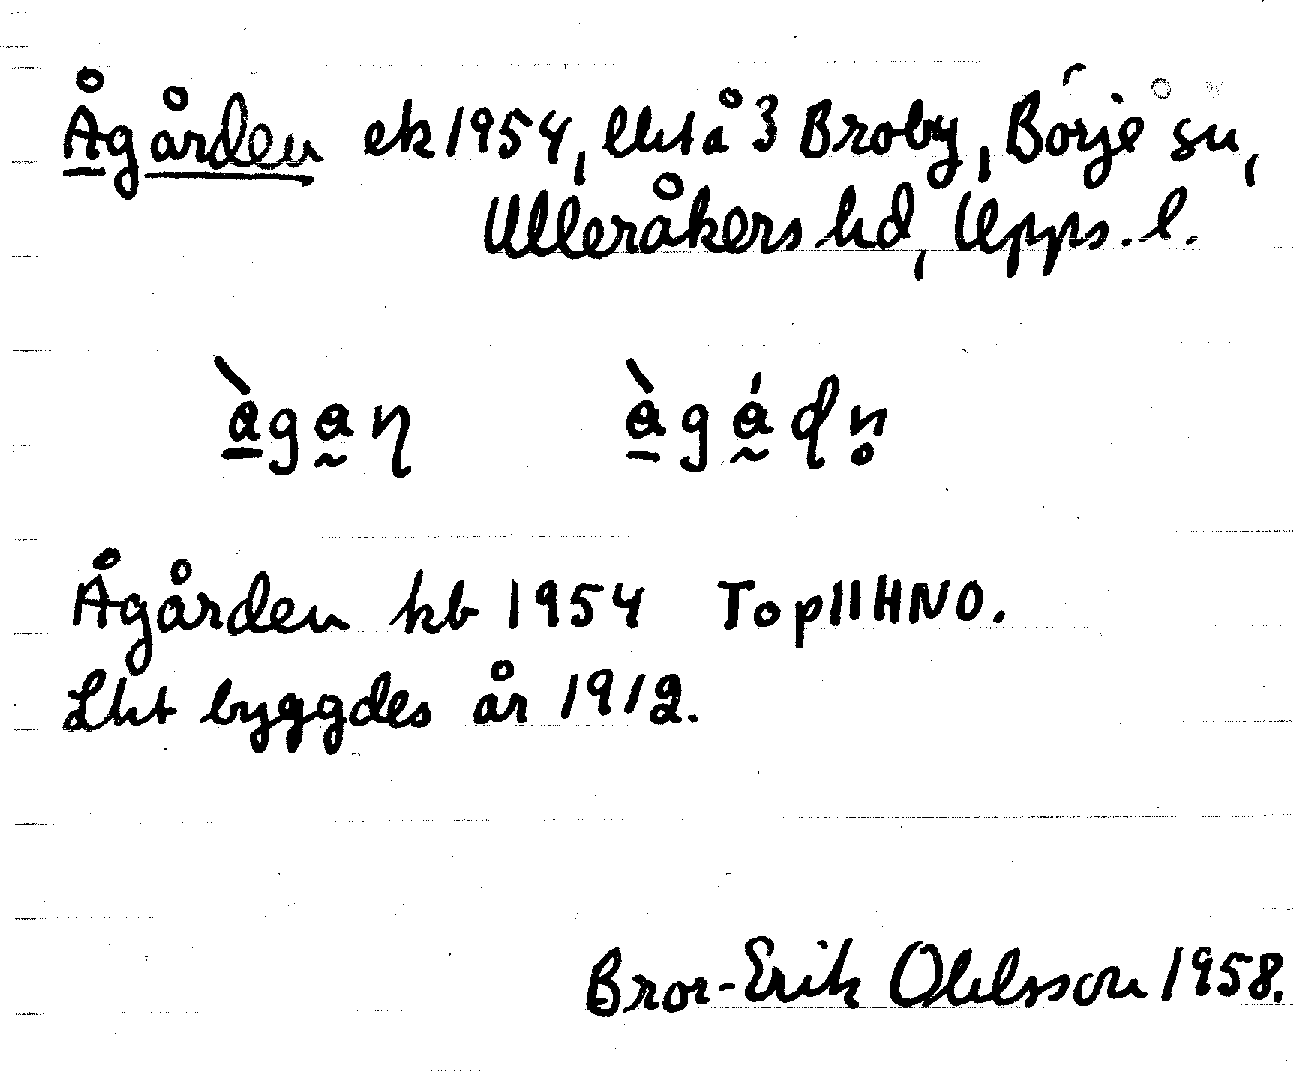 Ågården ek 1954, lht å 3 Broby, Börje sn,
Ulleråkers hd, Upps. l.
Ågården kb 1954 Top11HNO.
Lht byggdes år 1912.
Bror-Erik Ohlsson 1958.